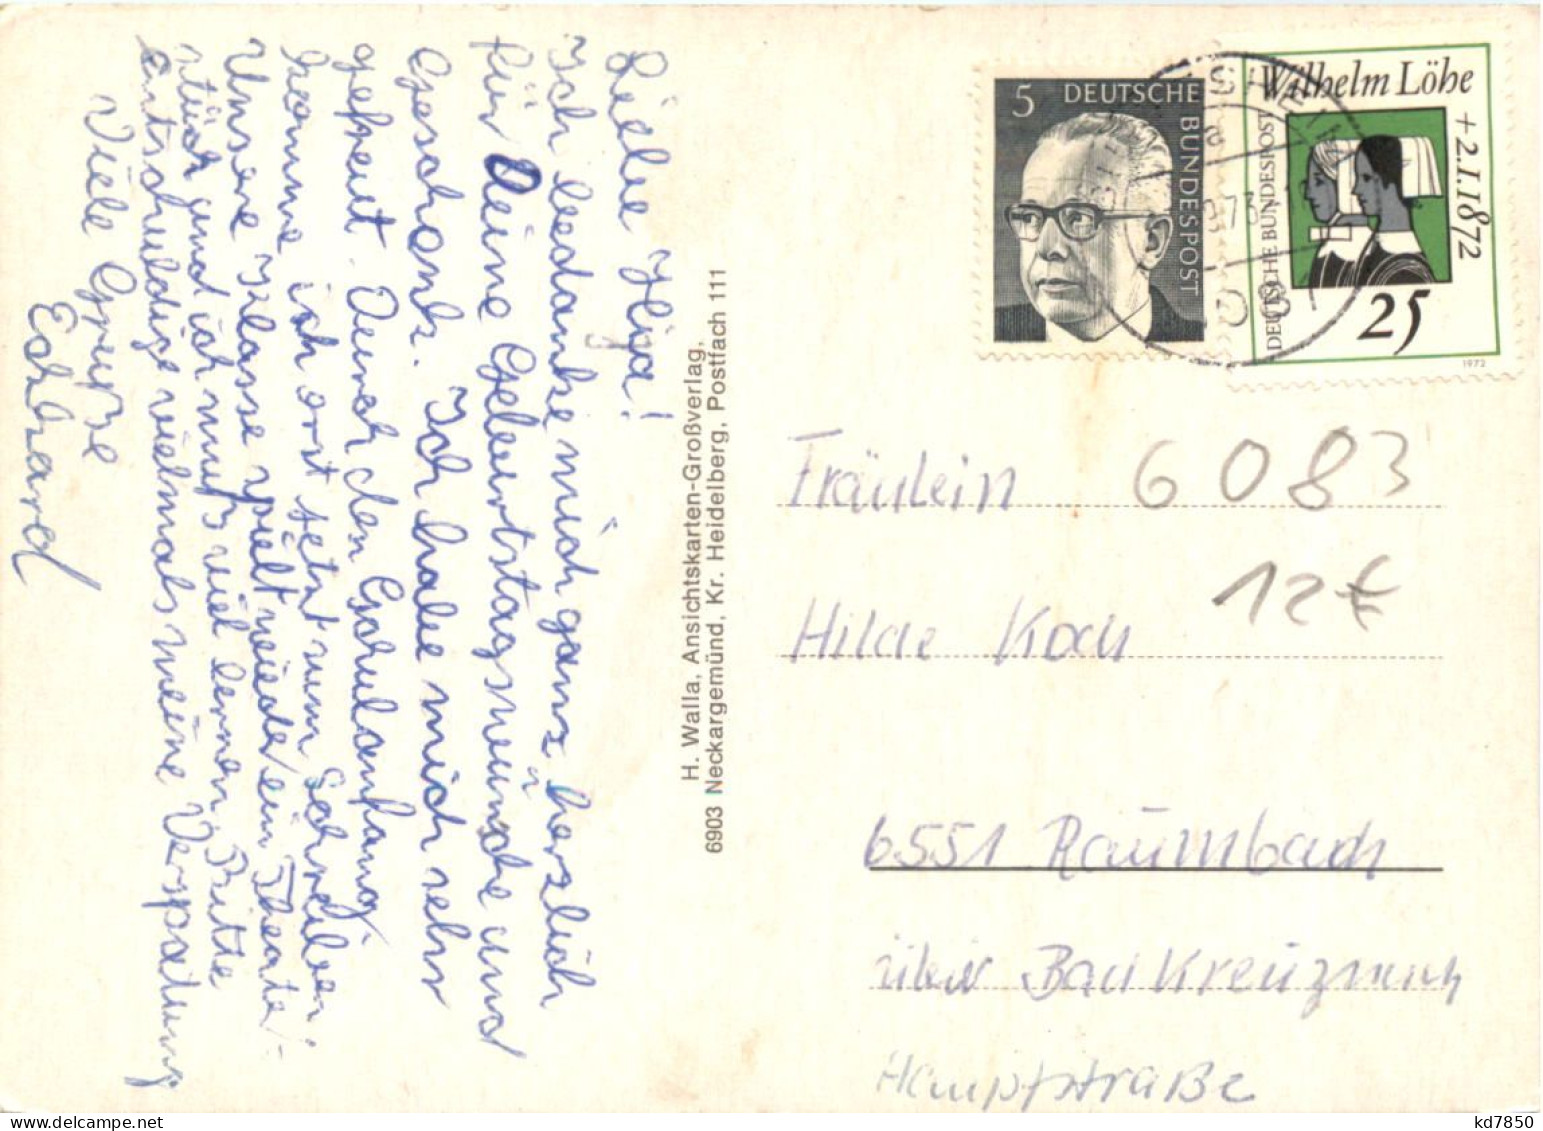 Liebe Hilda!
Ich bedanke mich ganz herzlich
für Deine Geburtstagswünsche und
Geschenk. Ich habe mich sehr
gefreut. Durch den Schulanfang
komme ich erst jetzt zum Schreiben.
Unsere Klasse spielt wieder ein Theate-
stück und ich muß viel lernen. Bitte
entschuldige vielmals meine Verspätung
Viele Grüße
Eckhard
H. Walla, Ansichtskarten-Großverlag,
6903 Neckargemünd, Kr. Heidelberg, Postfach 111
5 DEUTSCHE BUNDESPOST
Wilhelm Löhe
+2.1.1872
DEUTSCHE BUNDESPOST
25
1972
Fräulein 6083
12€
Hilde Koch
6551 Raumbach
über Bad Kreuznach
Hauptstraße
kd7850